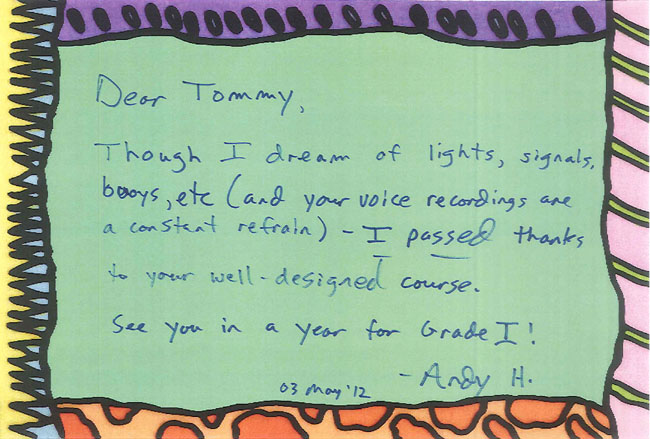 Dear Tommy,
Though I dream of lights, signals,
buoys, etc (and your voice recordings are
a constant refrain) - I passed thanks
to your well-designed course.
See you in a year for Grade I!
- Andy H.
03 May '12